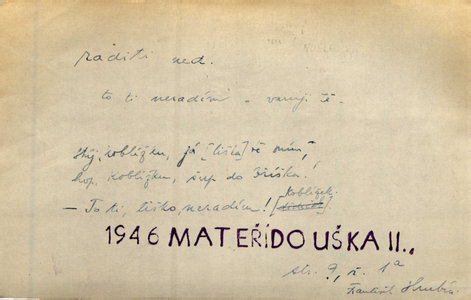 raditi ned.
to ti neradím - varuji tě.
Stůj, koblížku, já [liška] tě sním,
hop, koblížku, šup do bříška.
— To ti, liško, neradím! [Koblížek].
1946 MATEŘÍDOUŠKA II.,
str. 9, 1a
František Hrubín